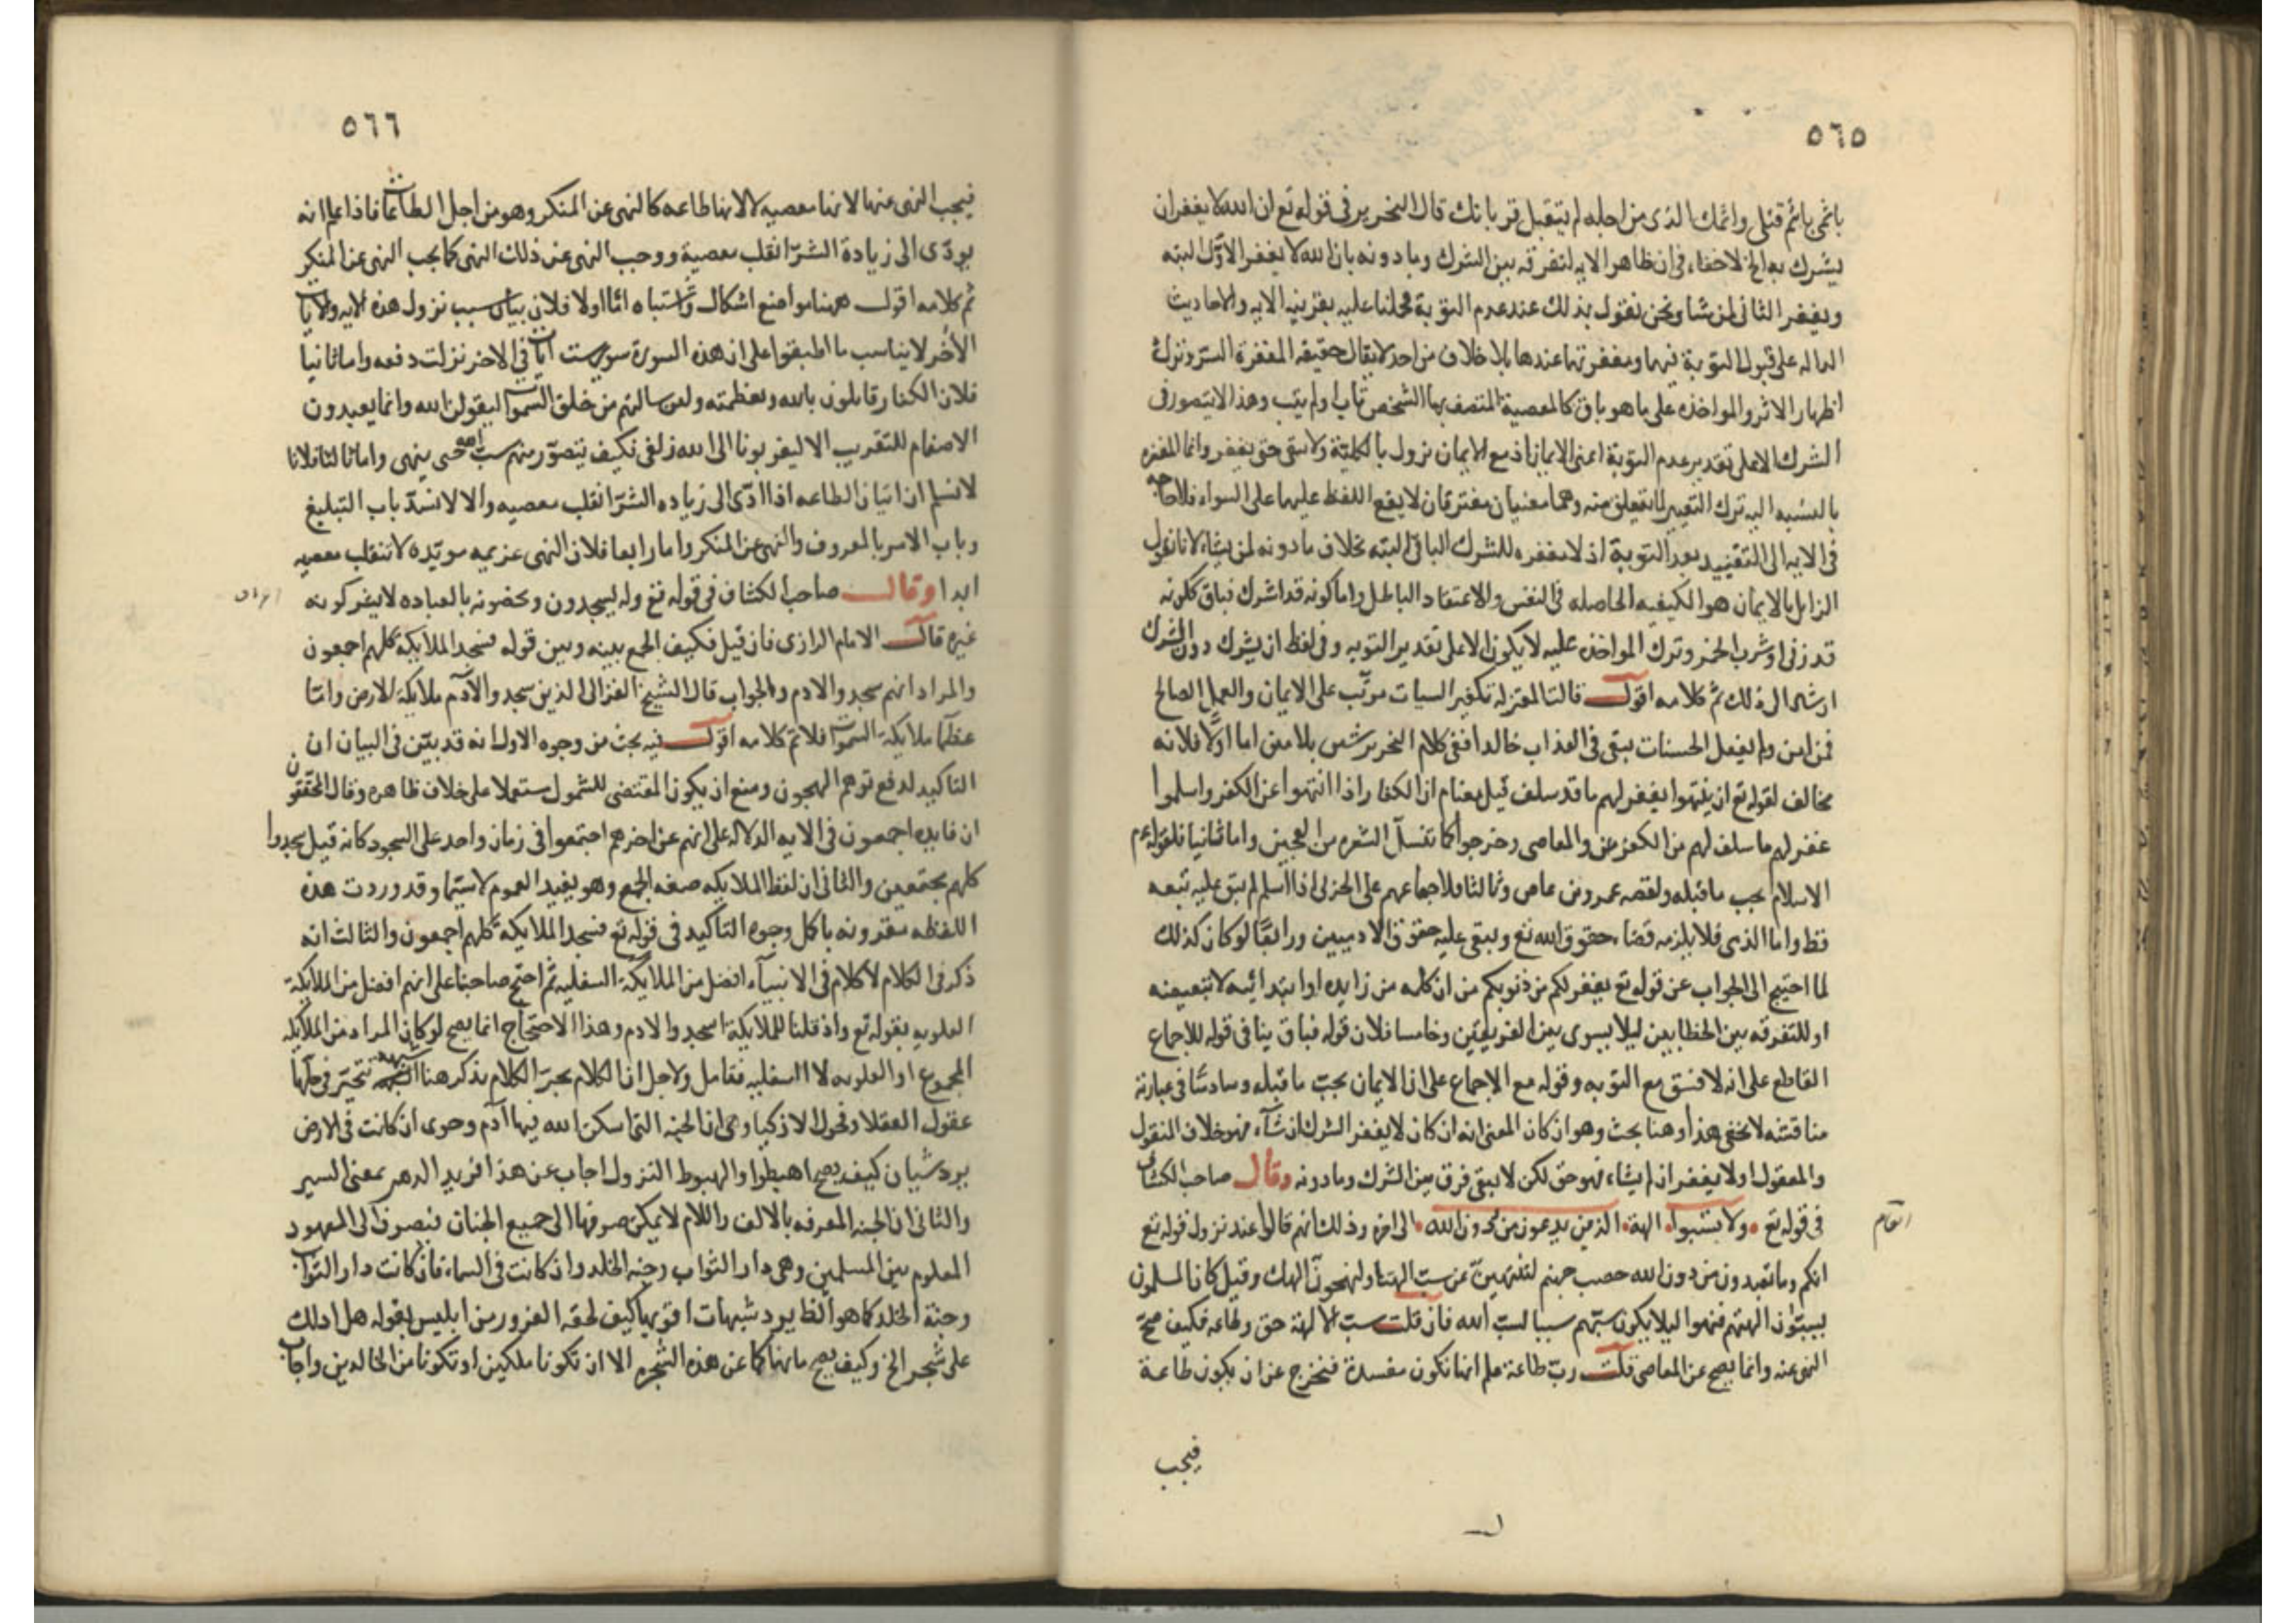 ٥٦٥
باثمى باثم قتلى واثمك الذى من اجله لم يتقبل قربانك قال النحرير فى قوله تع ان الله لا يغفر ان
يشرك به الخ لاخفاء فى ان ظاهر الايه لتفرقه بين الشرك وما دونه بان الله لا يغفر الاول البته
ويغفر الثانى لمن شا ونحن نقول بذلك عند عدم التوبة فحملنا عليه بقرينه الايه والاحاديث
الداله على قبول التوبة فيهما ومغفرتهما عندها بلا خلاف من احد لا يقال حقيقه المغفرة الستر وترك
اظهار الاثر والمواخذه على ما هو باق كالمعصية المتصف بها الشخص تاب او لم يتب وهذا لا يتصور فى
الشرك الا على تقدير عدم التوبة اعنى الايمان اذ مع الايمان نزول بالكلية ولا تبقى حتى يغفر وانما المغفره
بالنسبه اليه ترك التعيير لما تعلق منه وهما معنيان مفترقان لا يقع اللفظ عليهما على السواء فلا حاجه
فى الايه الى التقييد بعدم التوبة اذ لا مغفره للشرك الباقى البته بخلاف ما دونه لمن يشاء لانا نقول
الزايل بالايمان هو الكيفيه الحاصله فى النفس والاعتقاد الباطل واما كونه قد اشرك فباق ككونه
قد زنى او شرب الخمر وترك المواخذه عليه لا يكون الا على تقدير التوبه وفى لفظ ان يشرك دون الشرك
ارشاد الى ذلك ثم كلامه اقول قالت المعتزله تكفير السيات مرتب على الايمان والعمل الصالح
فمن امن ولم يفعل الحسنات يبقى فى العذاب خالدا ففى كلام النحرير شمس بلا مين اما اولا فلانه
مخالف لقوله تع ان ينتهوا يغفر لهم ما قد سلف قيل معنام ان الكفار اذا انتهوا عن الكفر واسلموا
غفر لهم ما سلف لهم من الكفر والمعاصى وخرجوا كما تنسل الشعره من العجين واما ثانيا فلقوله عم
الاسلام يجب ما قبله ولقصه عمرو بن عاص وثالثا فلاجماعهم على الحربى اذا اسلم لم يبق عليه تبعه
قط واما الذمى فلا يلزمه قضا حقوق الله تع ويبقى عليه حقوق الادميين ورابعا لو كان كذلك
لما احتيج الى الجواب عن قوله تع يغفر لكم من ذنوبكم من ان كلمه من زايده او ابتدائيه لا تبعيضه
او للتفرقه بين الخطابين ليلا يسوى بين الفريقين وخامسا فلان قوله فباق ينافى قوله للاجماع
القاطع على انه لا فسق مع التوبه وقوله مع الاجماع على ان الايمان يجب ما قبله وسادسا فى عبارته
مناقشه لا تخفى هذا وهنا بحث وهو ان كان المعنى انه ان كان لا يغفر الشرك ان شآء فهو خلاف النقول
والمعقول او لا يغفر ان لم يشاء فهو حق لكن لا يبقى فرق بين الشرك وما دونه وقال صاحب الكشاف
فى قوله تع ولا تسبوا الهة الذين يدعون من دون الله الى اخره وذلك انهم قالوا عند نزول قوله تع
انكم وما تعبدون من دون الله حصب جهنم لتنتهين عن سب الهتنا او لنهجون الهك وقيل كان المسلمون
يسبون الهتهم فنهوا ليلا يكون سبهم سببا لسب الله فان قلت سب الالهة حق وطاعه فكيف صح
النهى عنه وانما يصح عن المعاصى قلت رب طاعة علم انها تكون مفسدة فتخرج عن ان يكون طاعة
فيجب
٥٦٦
فيجب النهى عنها لانها معصيه لا لانها طاعه كالنهى عن المنكر وهو من اجل الطاعات فاذا علم انه
يودى الى زيادة الشر انقلب معصية ووجب النهى عن ذلك النهى كما يجب النهى عن المنكر
ثم كلامه اقول ههنا مواضع اشكال واشتباه اما اولا فلان بيان سبب نزول هذه الايه والايات
الاخر لا يناسب ما اطبقوا على ان هذه السورة سوى ست ايات فى الاخر نزلت دفعه واما ثانيا
فلان الكفار قايلون بالله وبعظمته ولئن سالتهم من خلق السموات ليقولن الله وانما يعبدون
الاصنام للتقريب الا ليقربونا الى الله زلفى فكيف يتصور منهم سب الله حتى ينهى واما ثالثا فلانا
لا نسلم ان اتيان الطاعه اذا ادى الى زياده الشر انقلب معصيه والا لانسد باب التبليغ
وباب الامر بالمعروف والنهى عن المنكر واما رابعا فلان النهى عزيمه مويده لا تنقلب معصيه
ابدا وقال صاحب الكشاف فى قوله تع وله يسجدون ويخضونه بالعباده لا يشركون به
غيره قال الامام الرازى فان قيل فكيف الجمع بينه وبين قوله فسجد الملايكة كلهم اجمعون
والمراد انهم سجدوا لادم والجواب قال الشيخ الغزالى الذين سجدوا لآدم ملايكة الارض واما
عظما ملايكة السموات فلا تم كلامه اقول فيه بحث من وجوه الاول انه قد بين فى البيان ان
التاكيد لدفع توهم الهجون ومنع ان يكون المقتضى للشمول مستعملا على خلاف ظاهره وقال المحققون
ان فايده اجمعون فى الايه الدلاله على انهم عن اخرهم اجتمعوا فى زمان واحد على السجود كانه قيل سجدوا
كلهم مجتمعين والثانى ان لفظ الملايكه صفه الجمع وهو يفيد العموم لا سيما وقد وردت هذه
اللفظه مقرونه باكل وجوه التاكيد فى قوله تع فسجد الملايكة كلهم اجمعون والثالث انه
ذكر فى الكلام لا كلام فى الانبيآء افضل من الملايكة السفليه ثم احتج صاحبنا على انهم افضل من الملايكة
العلويه بقوله تع واذ قلنا للملايكة اسجدوا لادم وهذا الاحتجاج انما يصح لو كان المراد من الملايكه
المجموع او العلويه لا السفليه فتامل ولاجل ان الكلام يجر الكلام نذكر هنا شبهة تتحير فى حلها
عقول العقلا وفحول الاذكيا وهى ان الجنه التى اسكن الله فيها آدم وحوى ان كانت فى الارض
يرد شيان كيف يصح اهبطوا والهبوط النزول اجاب عن هذا فريد الدهر بمعنى السير
والثانى ان الجنه المعرفه بالالف واللام لا يمكن صرفها الى جميع الجنان فبصرف الى المعهود
المعلوم بين المسلمين وهى دار الثواب وجنه الخلد وان كانت فى السماء فان كانت دار الثواب
وجنة الخلد كما هو الظ يرد شبهات اقويها كيف لحقه الغرور من ابليس بقوله هل ادلك
على شجر الخ وكيف يصح ما نهاكما عن هذه الشجره الا ان تكونا ملكين او تكونا من الخالدين واجاب